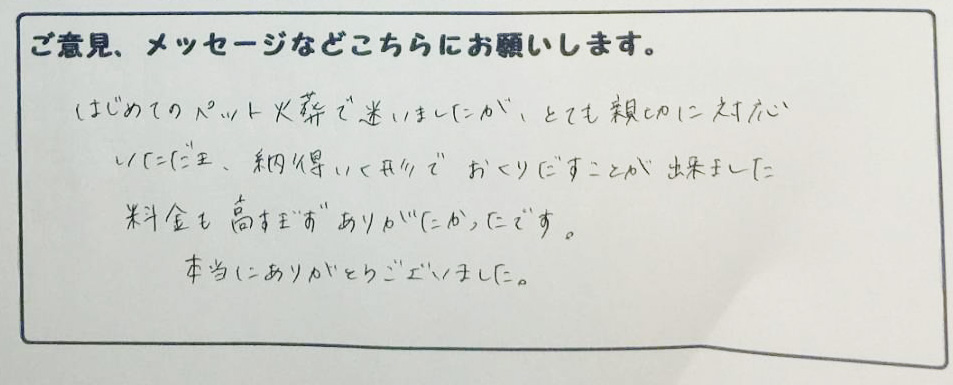 ご意見、メッセージなどこちらにお願いします。
はじめてのペット火葬で迷いましたが、とても親切に対応
いただき、納得いく形で おくりだすことが出来ました
料金も高すぎず ありがたかったです。
本当にありがとうございました。